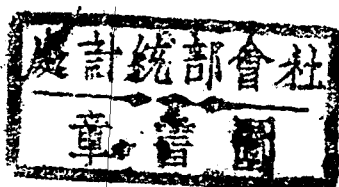 社會部統計處
圖書章